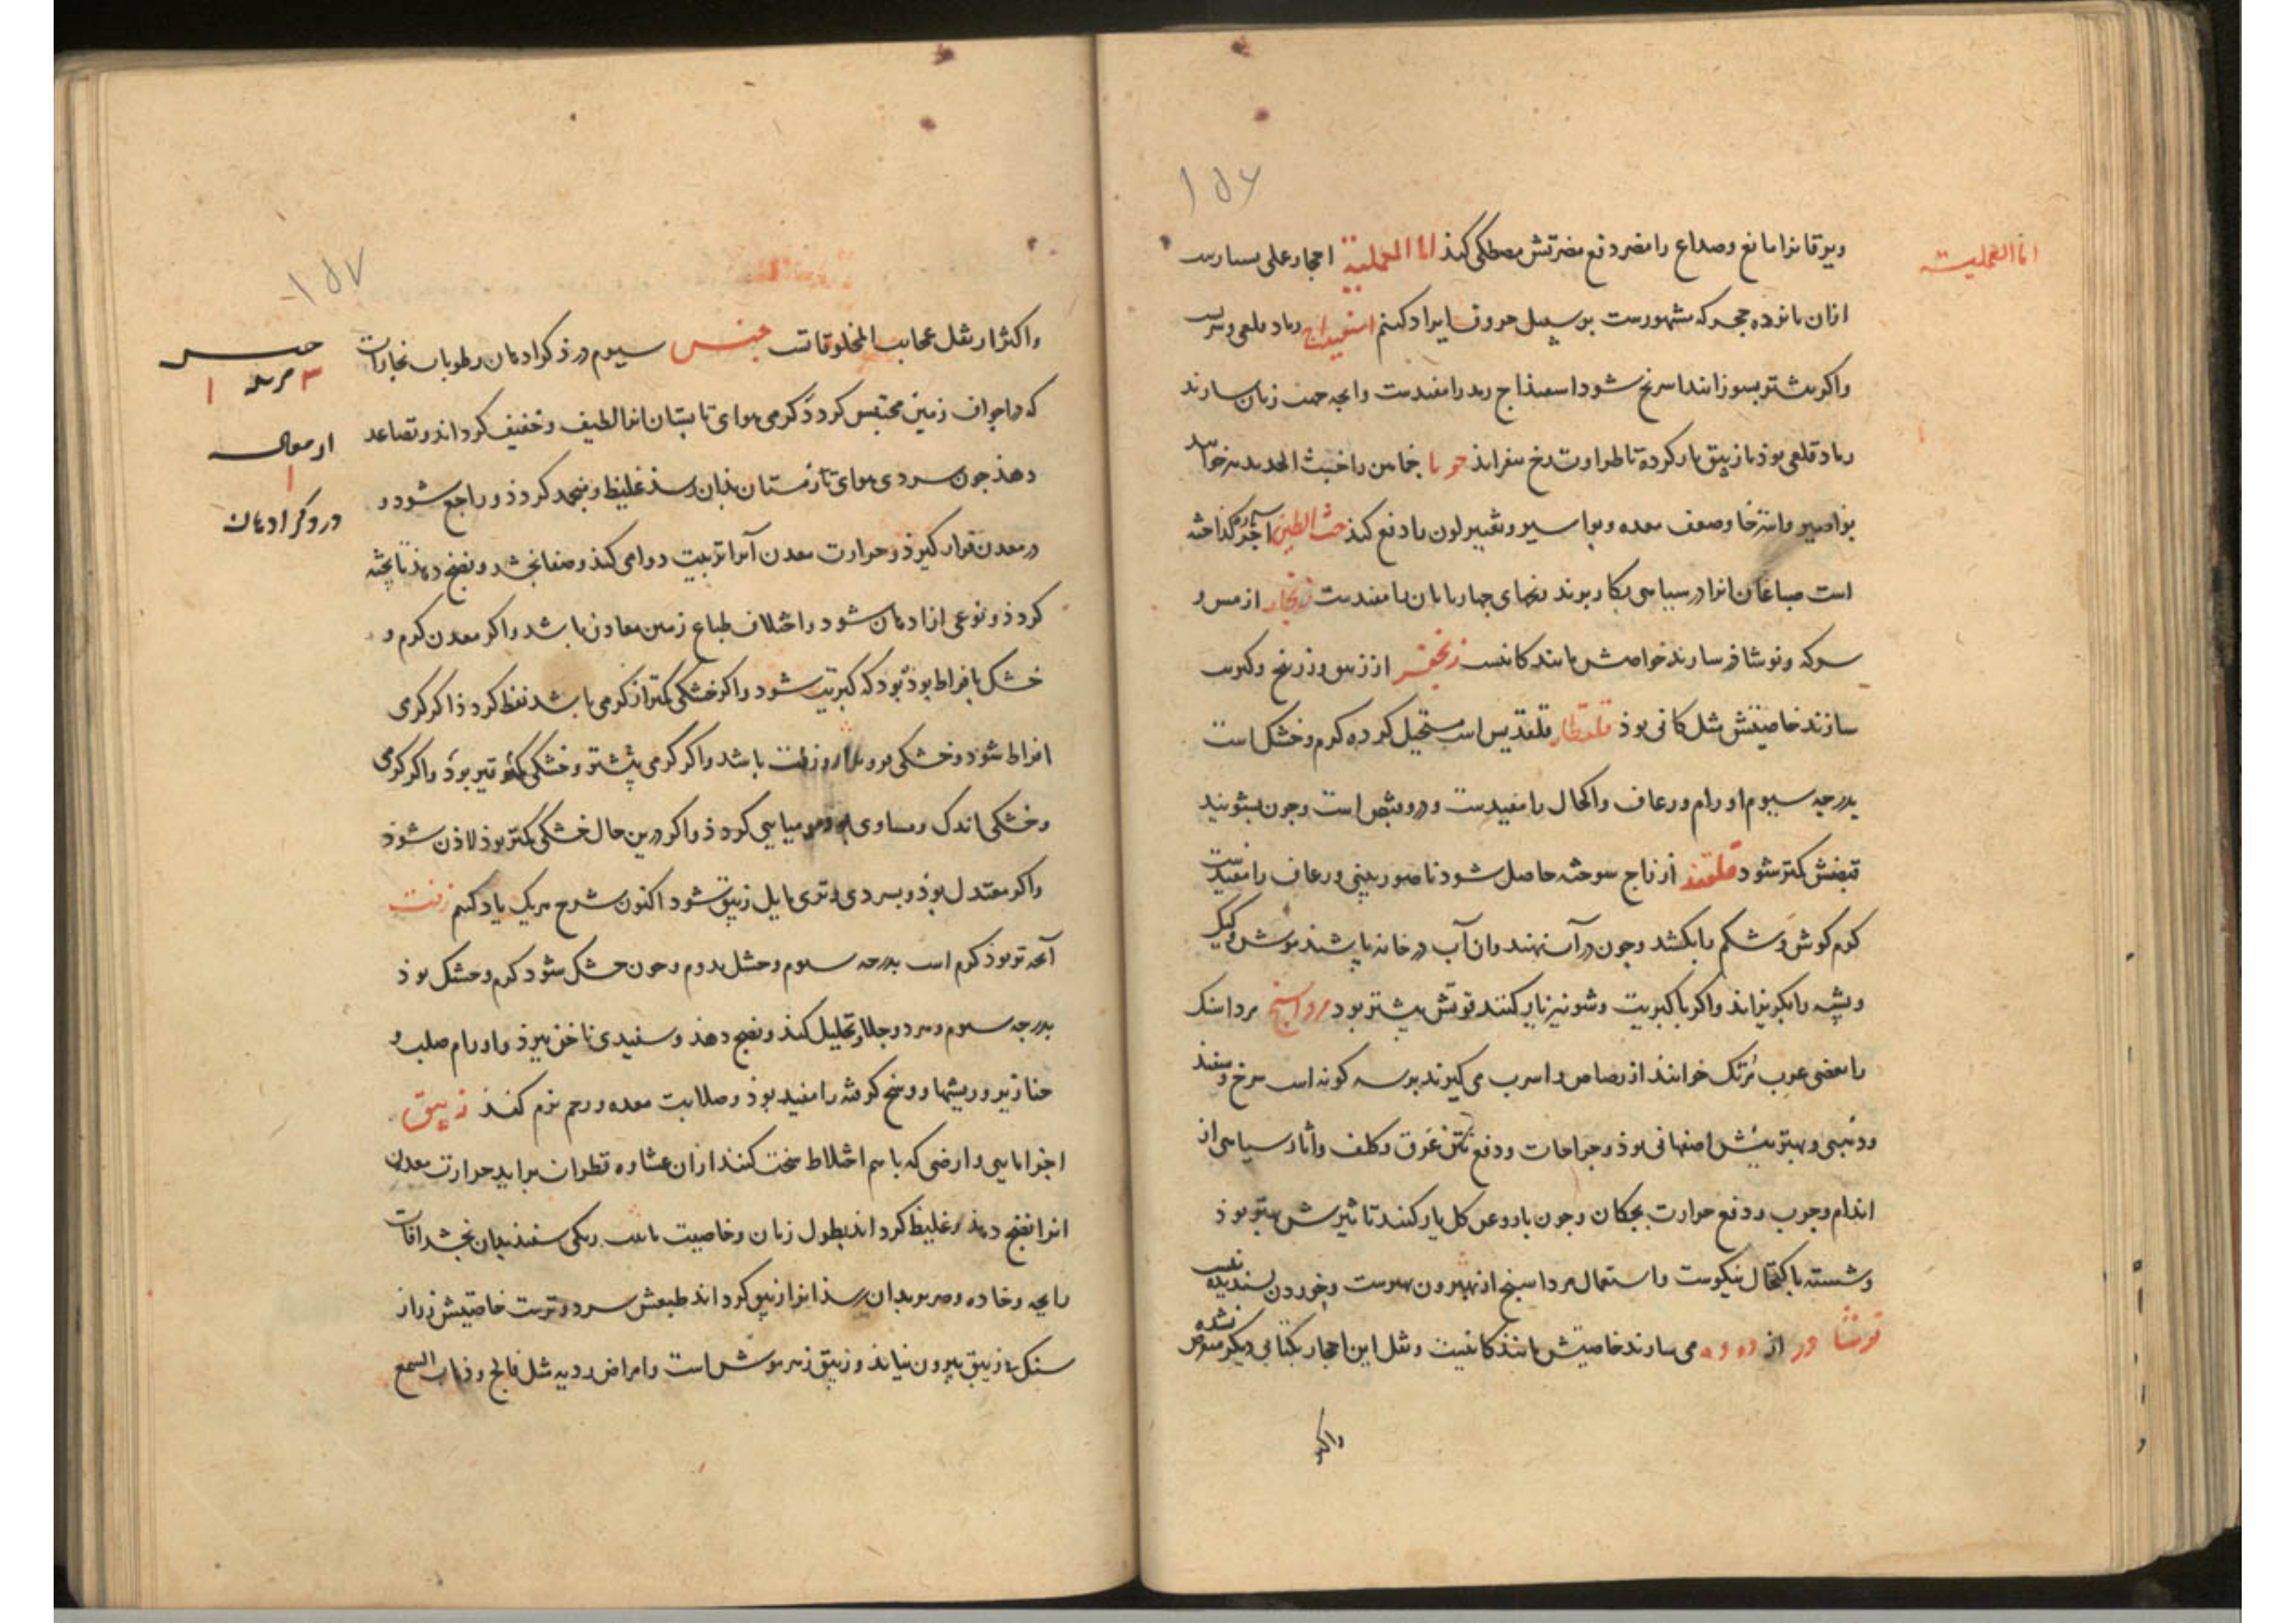 ۱۵۶
اما العملیة
ویرقانرا مانع وصداع را مضر دفع مضرتش مصطکی کند اما العملیة احجار عملی بسیارست
ازان پانزده حجر که مشهورست بر سبیل حروف ایراد کنیم اسفیداج رماد قلعی و سرب
واکر بیشتر بسوزانند اسرنج شود اسفیذاج رمد را مفیدست وانچه جهت زنان سازند
رماد قلعی بوذ با زیبق یار کرده تا طراوت رخ بیفزاید خماهن را خبث الحدید نیز خوانند
بواصیر واسترخا وضعف معده وبواسیر وتغییر لون را دفع کند خبث الطین آجر کداخته
است صباغان انرا در سیاهی بکار برند ریحهای چهارپایان را مفیدست زنجار از مس و
سرکه ونوشاذر سازند خواصش مانند کانیست زنجفر از زیبق وزرنیخ وکبریت
سازند خاصیتش مثل کانی بوذ قلقطار قلقدیس است مستحیل کرده کرم وخشک است
بدرجه سیوم اورام ورعاف واکحال را مفیدست ودرو قبض است وچون بشویند
قبضش کمتر شود قلقند از زاج سوخته حاصل شود ناصور بینی ورعاف را مفیدست
کرم کوش وشکم را بکشد وچون در آب نهند وان آب در خانه پاشند موش وکیک
وپشه را بکریزاند واکر با کبریت وشونیز یار کنند قوتش بیشتر بود مرداسنج مرداسنک
را بعضی عرب مرتک خوانند از رصاص واسرب می کیرند بر سه کونه است سرخ وسفید
وذهبی وبهترینش اصفهانی بوذ وجراحات ودفع نتن عرق وکلف وآثار سیاهی از
اندام وجرب ودفع حرارت بچکان وچون با روغن کل یار کنند تاثیرش بهتر بوذ
وشسته با کتحال نیکوست واستعمال مرداسنج از بیرون بهترست وخوردن پسندیده نیست
نوشاذر از دوده می سازند خاصیتش مانند کانیست ومثل این احجار بکتابی دیکر
واکثر
۱۵۷
جنس
۳
۱
۱
در ذکر ادهان
واکثر از نقل عجایب المخلوقاتست جنس سیوم در ذکر ادهان رطوبات بخارات
که در اجواف زمین محتبس کردد کرمی هوای تابستان انرا لطیف وخفیف کرداند وتصاعد
دهذ چون سردی هوای زمستان بذان رسذ غلیظ ومنجمد کردذ وراجع شود و
در معدن قرار کیرذ وحرارت معدن آنرا تربیت دوامی کند وصفا بخشد ونضج دهذ تا پخته
کردذ ونوعی از ادهان شود واختلاف طباع زمین معادن باشد واکر معدن کرم و
خشک بافراط بوذ کبریت شود واکر خشکی کمتر از کرمی باشد نفط کردذ اکر کرمی
افراط شود وخشکی زفت باشد واکر کرمی بیشتر وخشکی کمتر قیر بوذ واکر کرمی
وخشکی اندک ومساوی بود مومیایی کردذ واکر درین حال خشکی کمتر بوذ لاذن شوذ
واکر معتدل بوذ وبسردی وتری مایل زیبق شود اکنون شرح هریک یاد کنیم زفت
آنچه تر بوذ کرم است بدرجه سیوم وخشک بدوم وچون خشک شود کرم وخشک بوذ
بدرجه سیوم وهر دو جلا وتحلیل کنذ ونضج دهذ وسفیدی ناخن ببرذ واورام صلب و
خنازیر وریشها ووسخ کرفته را مفید بوذ وصلابت معده ورحم نرم کند زیبق
اجزا مایی وارضی که باهم اختلاط سخت کنند ازان قطران براید حرارت معدن
انرا نضج دهد وغلیظ کرداند بطول زمان وخاصیت رنکی سفید بدان بخشد آفات
رایحه وخاده بدان رسذ انرا زیبق کرداند طبعش سرد وترست خاصیتش زر از
سنک با زیبق بیرون نیایذ وزیبق زهر موش است وامراض ردیه مثل فالج وذهاب السمع